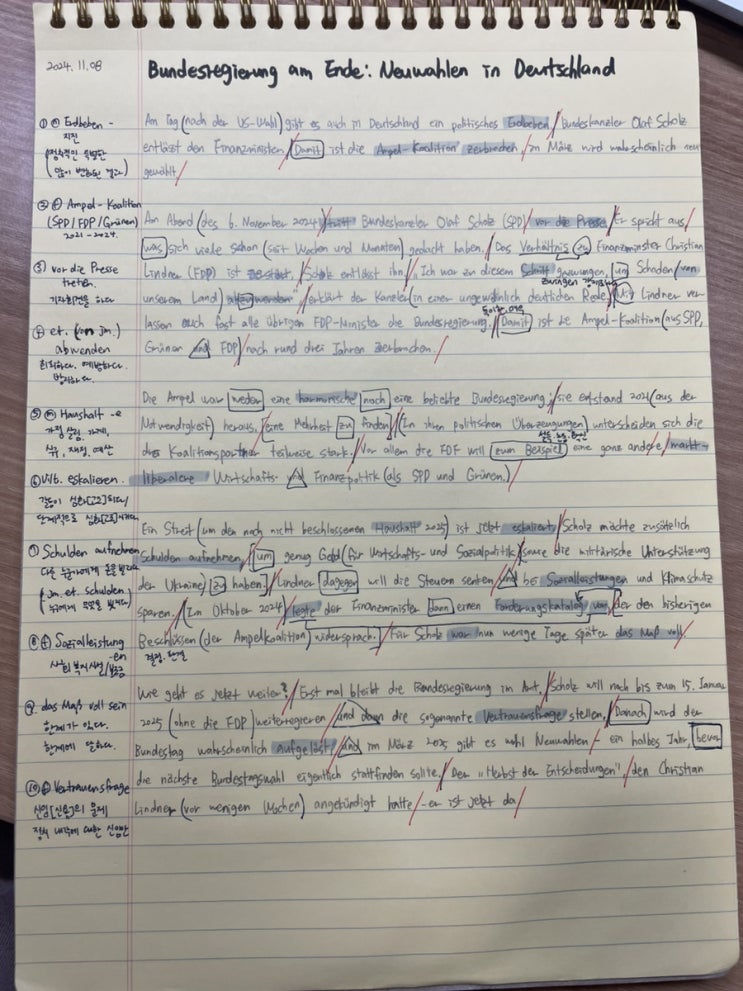 2024. 11. 08
Bundesregierung am Ende: Neuwahlen in Deutschland
① ⓝ Erdbeben -
지진
Am Tag (nach der US-Wahl) gibt es auch in Deutschland ein politisches Erdbeben / Bundeskanzler Olaf Scholz
entlässt den Finanzminister. / Damit ist die Ampel-Koalition zerbrochen, / im März wird wahrscheinlich neu
gewählt /
② ⓕ Ampel-Koalition
(SPD / FDP / Grünen)
2021-2024.
Am Abend (des 6. November 2024) / tritt Bundeskanzler Olaf Scholz (SPD) / vor die Presse / Er spricht aus /
was sich viele schon (seit Wochen und Monaten) gedacht haben. / Das Verhältnis zu Finanzminister Christian
③ vor die Presse
treten.
기자회견을 하다
Lindner (FDP) ist zerstört, / Scholz entlässt ihn. / "Ich war zu diesem Schritt gezwungen, um Schaden (von
zwingen
unserem Land) abzuwenden" / erklärt der Kanzler (in einer ungewöhnlich deutlichen Rede) / Mit Lindner ver-
④ et. (von jm.)
abwenden
회피하다. 예방하다.
방지하다.
lassen auch fast alle übrigen FDP-Minister die Bundesregierung. / Damit ist die Ampel-Koalition (aus SPD,
Grünen und FDP) nach rund drei Jahren zerbrochen. /
⑤ ⓜ Haushalt -e
재정, 예산
Die Ampel war weder eine harmonische noch eine beliebte Bundesregierung; / sie entstand 2021 (aus der
Notwendigkeit) heraus, / eine Mehrheit zu finden / (In ihren politischen Überzeugungen) unterscheiden sich die
das Koalitionspartner teilweise stark. / Vor allem die FDP will zum Beispiel eine ganz andere / markt-
⑥ Vi.b. eskalieren.
liberalere Wirtschafts- und Finanzpolitik (als SPD und Grünen). /
Ein Streit (um den noch nicht beschlossenen Haushalt 2025) ist jetzt eskaliert, / Scholz möchte zusätzlich
⑦ Schulden aufnehmen
(jm. et. schulden)
Schulden aufnehmen, / um genug Geld (für Wirtschafts- und Sozialpolitik / sowie die militärische Unterstützung
der Ukraine) zu haben. / Lindner dagegen will die Steuern senken / und bei Sozialleistungen und Klimaschutz
sparen. / (Im Oktober 2024) / legte der Finanzminister dann einen Forderungskatalog vor, der den bisherigen
⑧ ⓕ Sozialleistung
-en
Beschlüssen (der Ampelkoalition) widersprach. / Für Scholz war nun wenige Tage später das Maß voll /
결정, 판결
⑨ das Maß voll sein
한계가 있다.
한계에 달하다.
Wie geht es jetzt weiter? / Erst mal bleibt die Bundesregierung im Amt. / Scholz will noch bis zum 15. Januar
2025 (ohne die FDP) weiterregieren / und dann die sogenannte Vertrauensfrage stellen, / Danach wird der
Bundestag wahrscheinlich aufgelöst / und im März 2025 gibt es wohl Neuwahlen / - ein halbes Jahr, bevor
⑩ ⓕ Vertrauensfrage
die nächste Bundestagswahl eigentlich stattfinden sollte. / Der "Herbst der Entscheidungen", / den Christian
Lindner (vor wenigen Wochen) angekündigt hatte / - er ist jetzt da /